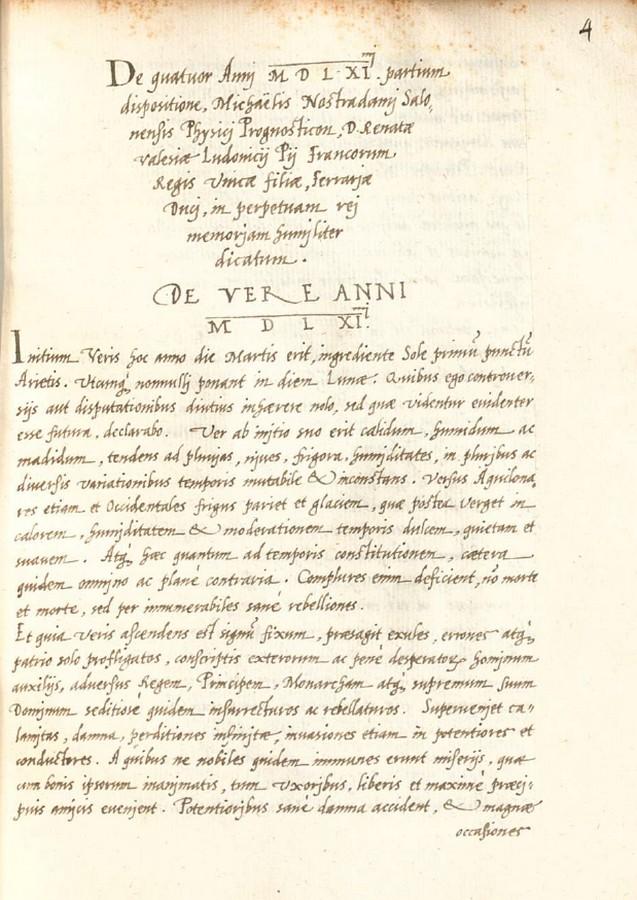 4
De quatuor Annj M D L XIIJ. partium
dispositione, Michaëlis Nostradamj Salo,
nensis Physicj Prognosticon, D. Renatæ
Valesiæ Ludovicij Pij Francorum
Regis Vnicæ filiæ, Ferrariæ
Ducj, in perpetuam rej
memorjam humjliter
dicatum.
DE VERE ANNI
M D L XIIJ.
Initium Veris hoc anno die Martis erit, ingrediente Sole primū punctū
Arietis. Vtcunq; nonnullj ponant in diem Lunæ: Quibus ego controuer:
sijs aut disputationibus diutius inhærere nolo, sed quæ videntur euidenter
esse futura, declarabo. Ver ab initio suo erit calidum, humidum ac
madidum, tendens ad pluujas, njues, frigora, humjditates, in pluribus ac
diuersis variationibus temporis mutabile & inconstans. Versus Aquilona,
res etiam et Occidentales frigus pariet et glaciem, quæ postea verget in
calorem, humjditatem & moderationem temporis dulcem, quietam et
suauem. Atq; hæc quantum ad temporis constitutionem, cætera
quidem omnino ac planè contraria. Complures enim deficient, nō morte
et morte, sed per innumerabiles sanè rebelliones.
Et quia Veris ascendens est signū fixum, præsagit exules, errones atq;
patrio solo profligatos, conscriptis exterorum ac penè desperatorꝝ hominum
auxilijs, aduersus Regem, Principem, Monarcham atq; supremum suum
Dominum seditiosè quidem insurrecturos ac rebellaturos. Superuenjet ca-
lamitas, damna, perditiones infinjtæ, inuasiones etiam in potentiores et
conductores. A quibus ne nobiles quidem immunes erunt miserijs, quæ
cum bonis ipsorum inanimatis, tum Vxoribus, liberis et maximè præcj:
puis amjcis euenjent. Potentioribus sanè damna accident, & magnæ
occasiones